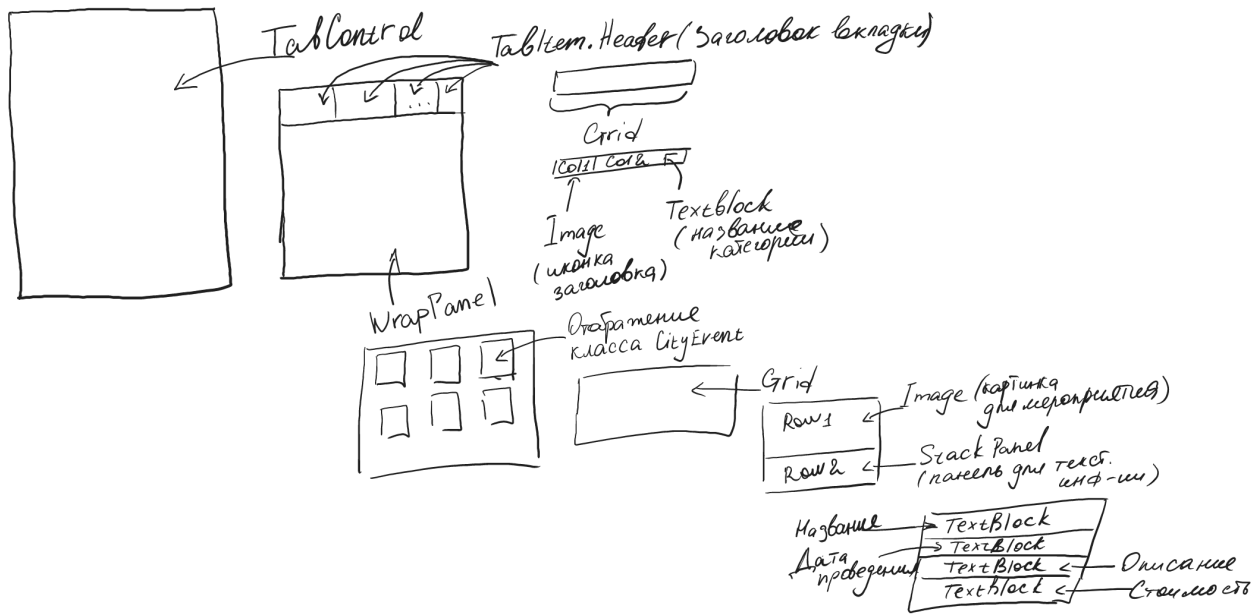 TabControl
TabItem.Header (Заголовок вкладки)
...
Grid
Col1 Col2
Image
(иконка
заголовка)
Textblock
(название
категории)
WrapPanel
Отображение
класса CityEvent
Grid
Row1
Row2
Image (картинка
для мероприятия)
Stack Panel
(панель для текст.
инф-ии)
Название
TextBlock
Дата
проведения
TextBlock
TextBlock
Описание
Textblock
Стоимость